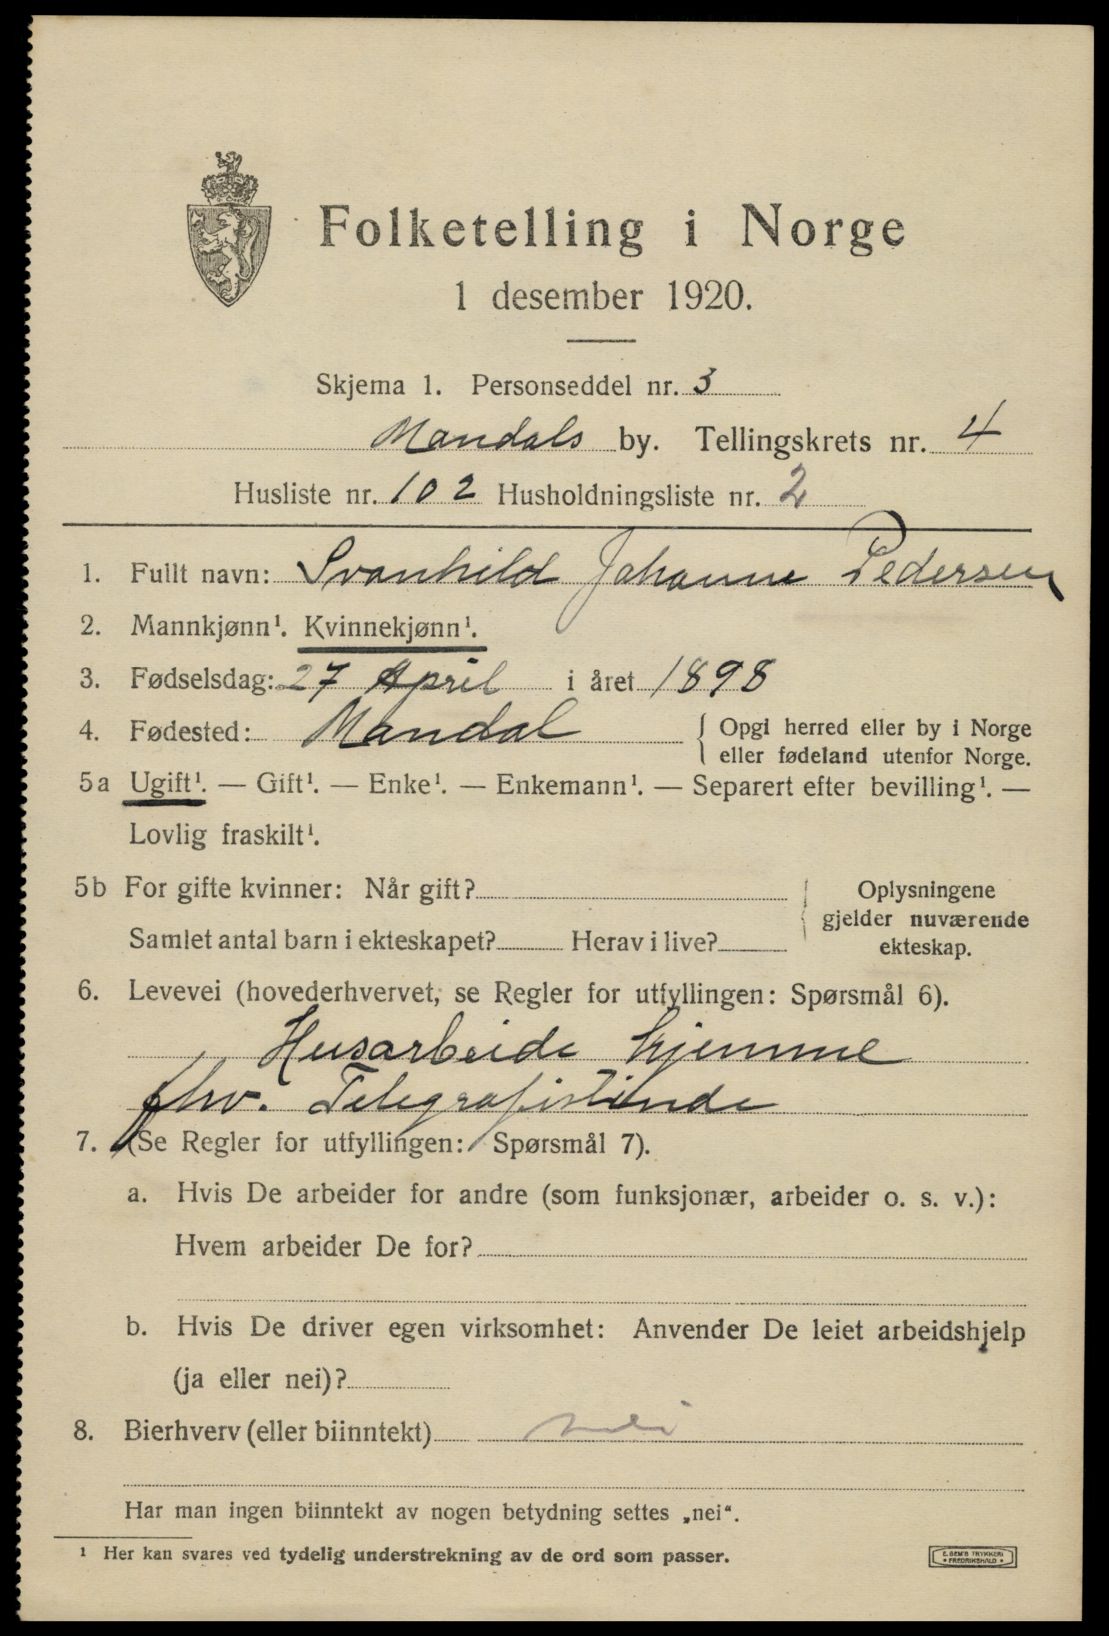 Folketelling i Norge
1 desember 1920.
Skjema 1. Personseddel nr. 3
Mandals by. Tellingskrets nr. 4
Husliste nr. 102 Husholdningsliste nr. 2
1. Fullt navn: Svanhild Johanne Pedersen
2. Mannkjønn¹. Kvinnekjønn¹.
3. Fødselsdag: 27 April i året 1898
4. Fødested: Mandal { Opgi herred eller by i Norge
eller fødeland utenfor Norge.
5a Ugift¹. — Gift¹. — Enke¹. — Enkemann¹. — Separert efter bevilling¹. —
Lovlig fraskilt¹.
5b For gifte kvinner: Når gift? { Oplysningene
gjelder nuværende
Samlet antal barn i ekteskapet? Herav i live? ekteskap.
6. Levevei (hovederhvervet, se Regler for utfyllingen: Spørsmål 6).
Husarbeide hjemme
fhv. Telegrafistinde
7. (Se Regler for utfyllingen: Spørsmål 7).
a. Hvis De arbeider for andre (som funksjonær, arbeider o. s. v.):
Hvem arbeider De for?
b. Hvis De driver egen virksomhet: Anvender De leiet arbeidshjelp
(ja eller nei)?
8. Bierhverv (eller biinntekt) nei
Har man ingen biinntekt av nogen betydning settes „nei“.
¹ Her kan svares ved tydelig understrekning av de ord som passer.
E. SEM'S TRYKKERI
• FREDRIKSHALD •